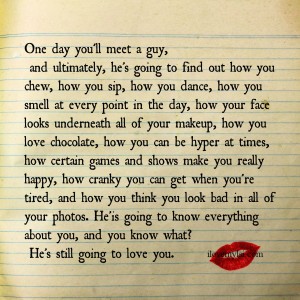 One day you'll meet a guy,
and ultimately, he's going to find out how you
chew, how you sip, how you dance, how you
smell at every point in the day, how your face
looks underneath all of your makeup, how you
love chocolate, how you can be hyper at times,
how certain games and shows make you really
happy, how cranky you can get when you're
tired, and how you think you look bad in all
of your photos. He'is going to know everything
about you, and you know what?
He's still going to love you.